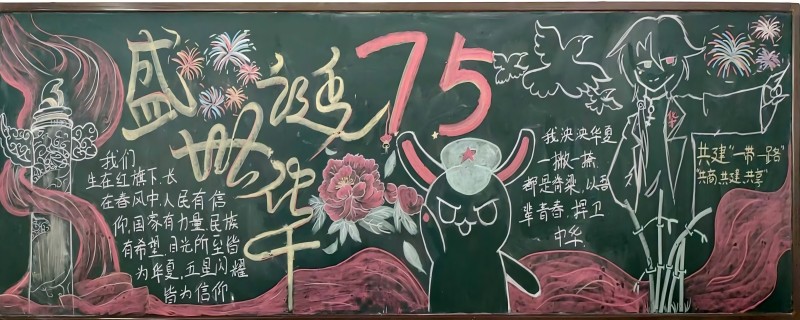 盛世华诞
75
我们
生在红旗下,长
在春风中,人民有信
仰,国家有力量,民族
有希望,目光所至皆
为华夏,五星闪耀
皆为信仰.
我泱泱华夏
一撇一捺
都是脊梁,以吾
辈青春,捍卫
中华.
共建"一带一路"
"共商,共建,共享"